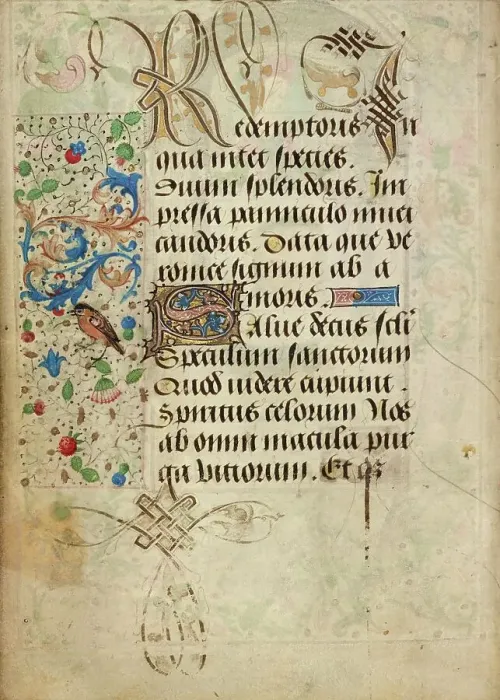 Redemptoris In
qua nitet species.
Diuini splendoris. Im
pressa panniculo niuei
candoris. Data que ve
ronice signum ob a
moris.
Salue decus scli
Speculum sanctorum
Quod videre cupiunt.
Spiritus celorum Nos
ab omni macula pur
ga vitiorum. Et